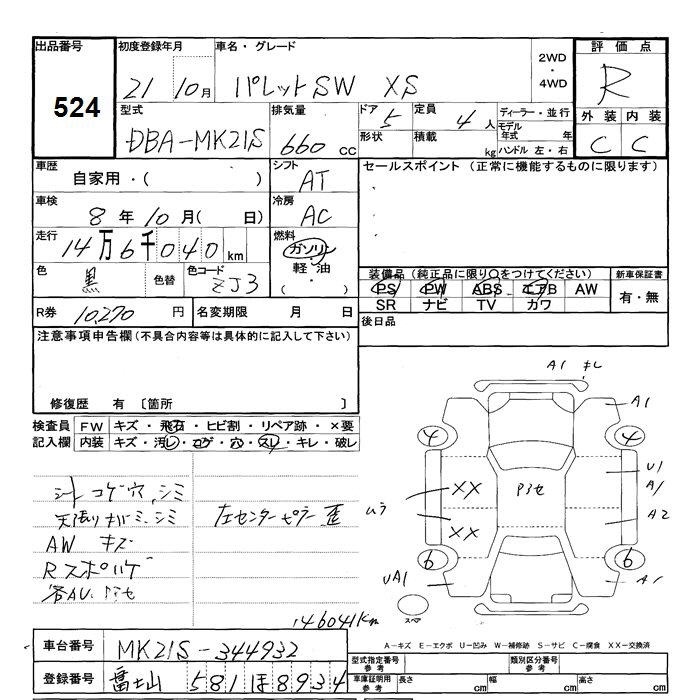 出品番号 初度登録年月 車名・グレード 2WD・4WD 評価点
524 21 10月 パレットSW XS R
型式 排気量 ドア 5 定員 4人 ディーラー・並行 外装 内装
DBA-MK21S 660cc 形状 積載 kg モデル年式 年 C C
ハンドル 左・右
車歴 シフト セールスポイント (正常に機能するものに限ります)
自家用・( ) AT
車検 冷房
8年10月( 日) AC
走行 燃料
14万6千040km ガソリン
色 色替 色コード 軽・油
黒 ZJ3 ( ・ )
装備品(純正品に限り○をつけてください) 新車保証書
PS PW ABS エアB AW 有・無
SR ナビ TV カワ
R券 10,270円 名変期限 月 日 後日品
注意事項申告欄(不具合内容等は具体的に記入して下さい)
修復歴 有 〔箇所 〕
検査員 FW キズ・飛石・ヒビ割・リペア跡・×要
記入欄 内装 キズ・汚レ・コゲ・穴・スレ・キレ・破レ
シート コゲ穴、シミ
天張り キバミ、シミ 左センターピラー歪
AW キズ
Rスポハゲ
146041km
A1 キレ
A1
4 4
U1
XX ムラ A1
XX A2
6 6
UA1 A1
スペア
車台番号 MK21S-344932
登録番号 富士山 581 ほ 8934
A-キズ E-エクボ U-凹み W-補修跡 S-サビ C-腐食 XX-交換済
型式指定番号 参考 類別区分番号 参考
車庫証明用 参考 長さ cm 幅 cm 高さ cm